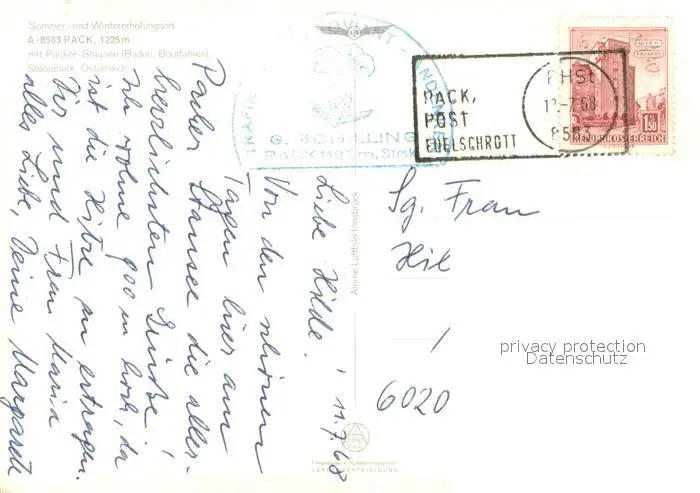 Sommer- und Wintererholungsort
A-8583 PACK, 1225 m
mit Packer-Stausee (Baden, Bootfahren)
Steiermark, Österreich
Alpine Luftbild Innsbruck
G. SCHILLING
PACK 1125 m, Stmk
PACK,
POST
EDELSCHROTT
12.-7.68
858
WIEN
ERDBERG
1.50
REPUBLIK ÖSTERREICH
11.7.68
Liebe Hilde!
Von den schönen
Tagen hier am
Packer Stausee die aller-
herzlichsten Grüße!
Ich wohne 900 m hoch, da
ist die Hitze zu ertragen.
Dir und Frau Maria
alles Liebe, Deine Margarete
Sg. Frau
Hil
/
6020
privacy protection
Datenschutz